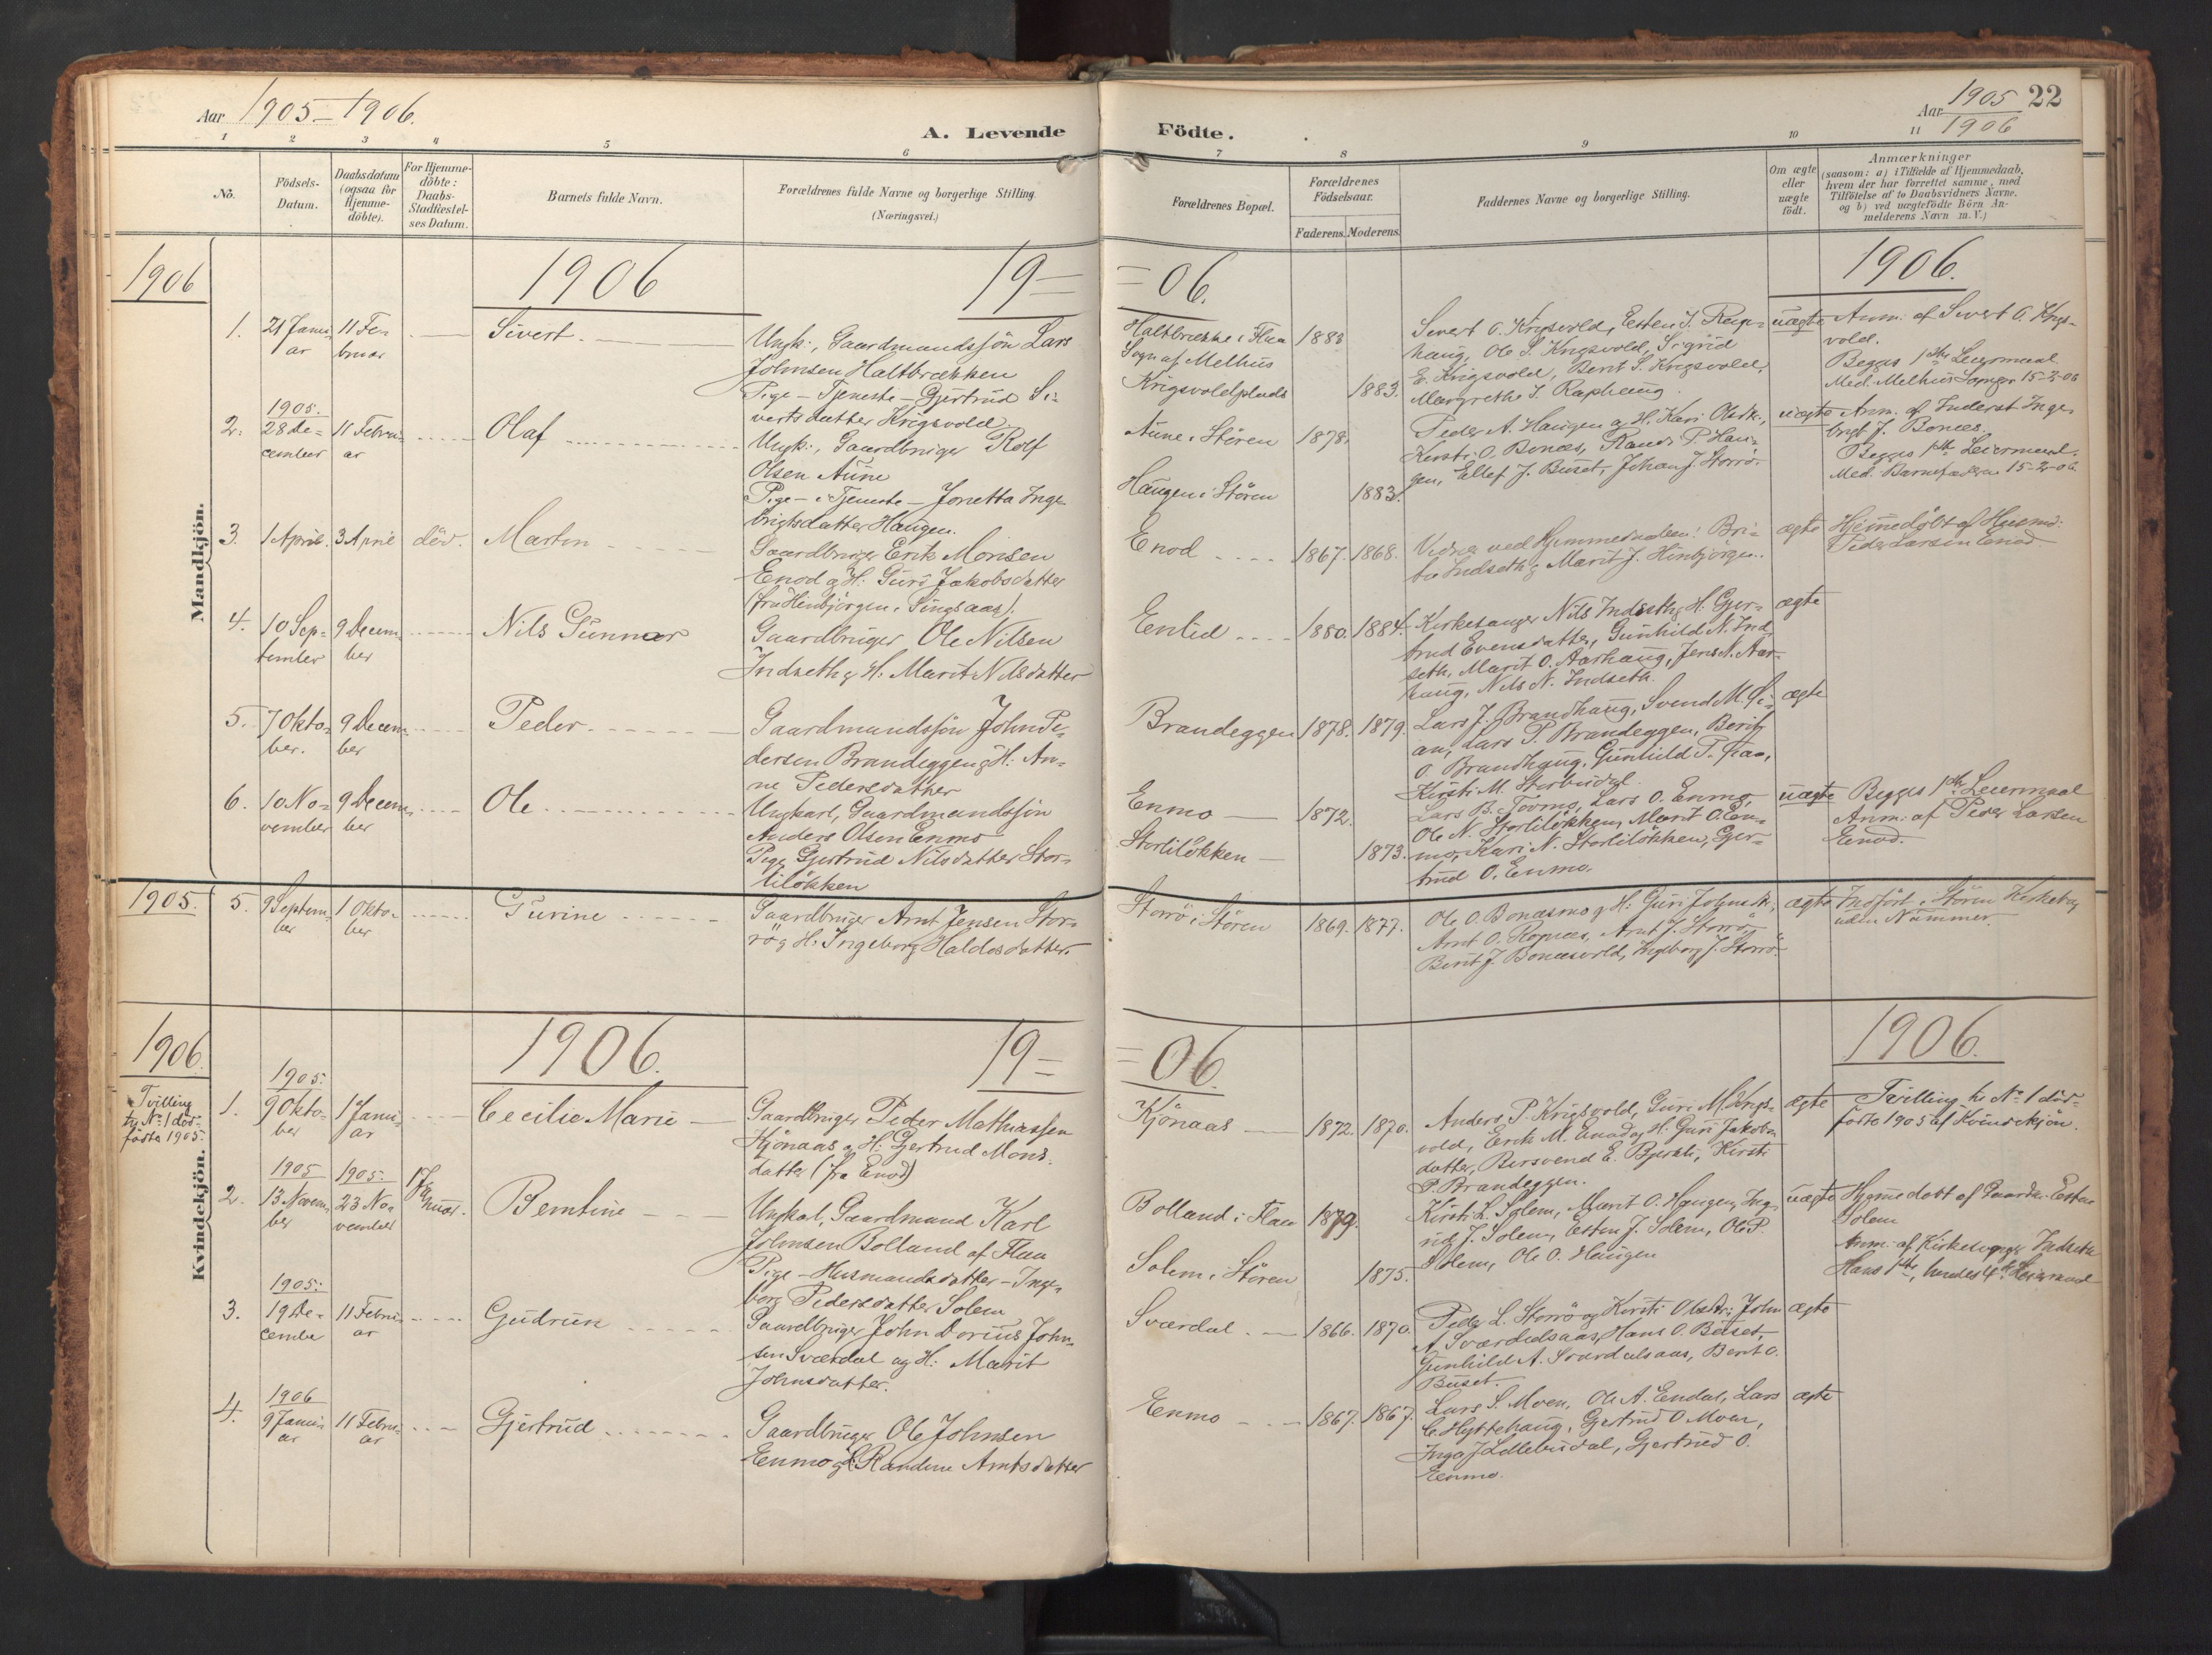 Aar 1905–1906.
A. Levende Födte.
Aar 1905 22
1906
1 2 3 4 5 6 7 8 9 10 11
No.
Födsels-
Datum.
Daabsdatum
(ogsaa for
Hjemme-
döbte).
For Hjemme-
döbte:
Daabs-
Stadfæstel-
ses Datum.
Barnets fulde Navn.
Forældrenes fulde Navne og borgerlige Stilling.
(Næringsvei.)
Forældrenes Bopæl.
Forældrenes
Födselsaar.
Faderens. Moderens.
Faddernes Navne og borgerlige Stilling.
Om ægte
eller
uægte
födt.
Anmærkninger
(saasom: a) i Tilfælde af Hjemmedaab,
hvem der har forrettet samme, med
Tilföielse af to Daabsvidners Navne.
og b) ved uægtefödte Börn An-
melderens Navn m. V.)
Mandkjön.
1906 1906 19= =06. 1906.
1. 21 Janu-
ar
11 Fe-
bruar
Sivert.
Ungk., Gaardmandssön Lars
Johnsen Haltbrækken
Pige – Tjeneste – Gjertrud Si-
vertsdatter Krigsvold
Haltbrække i Flaa
Sogn af Melhus
Krigsvoldplads
1883
1883.
Sivert O. Krigsvold, Esten J. Rap-
haug, Ole S. Krigsvold, Sigrid
E. Krigsvold, Berit S. Krigsvold,
Margrethe J. Raphaug.
uægte
Anm. af Sivert O. Krigs-
vold.
Begges 1ste Leiermaal
Med. Melhus Sognepr 15-2-06
2. 1905.
28 De-
cember
11 Febru-
ar
Olaf
Ungk., Gaardbruger Rolf
Olsen Aune
Pige – i Tjeneste – Jonetta Inge-
brigtsdatter Haugen.
Aune i Stören
Haugen i Stören
1878.
1883.
Peder A. Haugen og H. Kari Olsdtr.,
Kirsti O. Bonæs, Randi P. Hau-
gen, Ellef J. Buset, Johan J. Storrö.
uægte
Anm. af Inderst Inge-
brigt J. Bonæs.
Begges 1ste Leiermaal.
Med. Barnefaderen 15-2-06.
3. 1 April. 3 April död.
Martin
Gaardbruger Erik Monsen
Enod og H. Guri Jakobsdatter
(fra Hinbjörgen, Singsaas).
Enod
1867. 1868.
Vidner ved Hjemmedaaben: Bri-
ta Indseth og Marit J. Hinbjörgen.
ægte
Hjemmedöbt af Husmd.
Peder Larsen Enod.
4. 10 Sep-
tember
9 Decem-
ber
Nils Gunnar
Gaardbruger Ole Nilsen
Indseth og H. Marit Nilsdatter
Enlid
1880. 1884.
Kirkesanger Nils Indseth og H. Gjer-
trud Evensdatter, Gunhild N. Ind-
seth, Marit O. Aarhaug, Jens A. Aar-
haug, Nils N. Indseth.
ægte
5. 7 Okto-
ber.
9 Decem-
ber
Peder
Gaardmandssön John Pe-
dersen Brandeggen og H. An-
ne Pedersdatter
Brandeggen
1878. 1879.
Lars J. Brandhaug, Svend M.
Lars P. Brandeggen, Berit
O. Brandhaug, Gunhild T.
Kirsti M. Storbudal.
ægte
6. 10 No-
vember
9 Decem-
ber
Ole
Ungkarl, Gaardmandssön
Anders Olsen Enmo
Pige Gjertrud Nilsdatter Stor-
lilökken
Enmo
Storlilökken
1872.
1873.
Lars B. Tovmo, Lars O. Enmo,
Ole N. Storlilökken, Marit O. En-
mo, Kari N. Storlilökken, Gjer-
trud O. Enmo.
uægte
Begges 1ste Leiermaal
Anm. af Peder Larsen
Enod.
1905. 5. 9 Septem-
ber
1 Okto-
ber
Gurine
Gaardbruger Arnt Jensen Stor-
rö og H. Ingeborg Haldosdatter.
Storrö i Stören
1869. 1877.
Ole O. Bonæsmo og H. Guri Johnsdtr.,
Arnt O. Rognæs, Arnt J. Storrö,
Berit J. Bonæsvold, Ingeborg J. Storrö.
ægte
Indfört i Stören Kirkebog
uden Nummer.
Kvindekjön.
1906. 1906. 19= =06. 1906.
Tvilling
til No 1 död-
födte 1905.
1. 1905.
9 Okto-
ber
1 Janu-
ar
Cecilie Marie
Gaardbruger Peder Mathiassen
Kjönaas og H. Gjertrud Mons-
datter (fra Enod)
Kjönaas
1872. 1870.
Anders P. Krigsvold, Guri M. Krigs-
vold, Erik M. Enod og H. Guri Jakobs-
datter, Bersvend E. Bjerkli, Kirsti
P. Brandeggen.
ægte
Tvilling til No 1 död-
födte 1905 af Kvindekjön.
2. 1905
13 Novem-
ber
1905.
23 No-
vember
1 Ja-
nuar.
Berntine
Ungkarl, Gaardmand Karl
Johnsen Bolland af Flaa
Pige – Husmandsdatter – Inge-
borg Pedersdatter Solem
Bolland i Flaa
Solem i Stören
1879.
1875.
Kirsti L. Solem, Marit O. Haugen, Ing-
rid J. Solem, Esten J. Solem, Ole P.
Solem, Ole O. Haugen
uægte
Hjemmedöbt af Gaardbr. Esten
Solem
Anm. af Kirkesanger Indseth
Hans 1ste, hendes 4de Leiermaal
3. 1905.
19 De-
cember
11 Febru-
ar
Gudrun
Gaardbruger John Dorius John-
sen Sværdal og H. Marit
Johnsdatter.
Sværdal
1866. 1870.
Peder L. Storrö og Kirsti Olsdtr., John
A. Sværdalsaas, Hans O. Buset,
Gunhild A. Sværdalsaas, Berit O.
Buset.
ægte
4. 1906
9 Janu-
ar
11 Febru-
ar
Gjertrud
Gaardbruger Ole Johnsen
Enmo og H. Randine Arntsdatter
Enmo
1867. 1867.
Lars S. Moen, Ole A. Endal, Lars
C. Hyttehaug, Gjertrud O. Moen,
Inga J. Lillebudal, Gjertrud O.
Enmo.
ægte